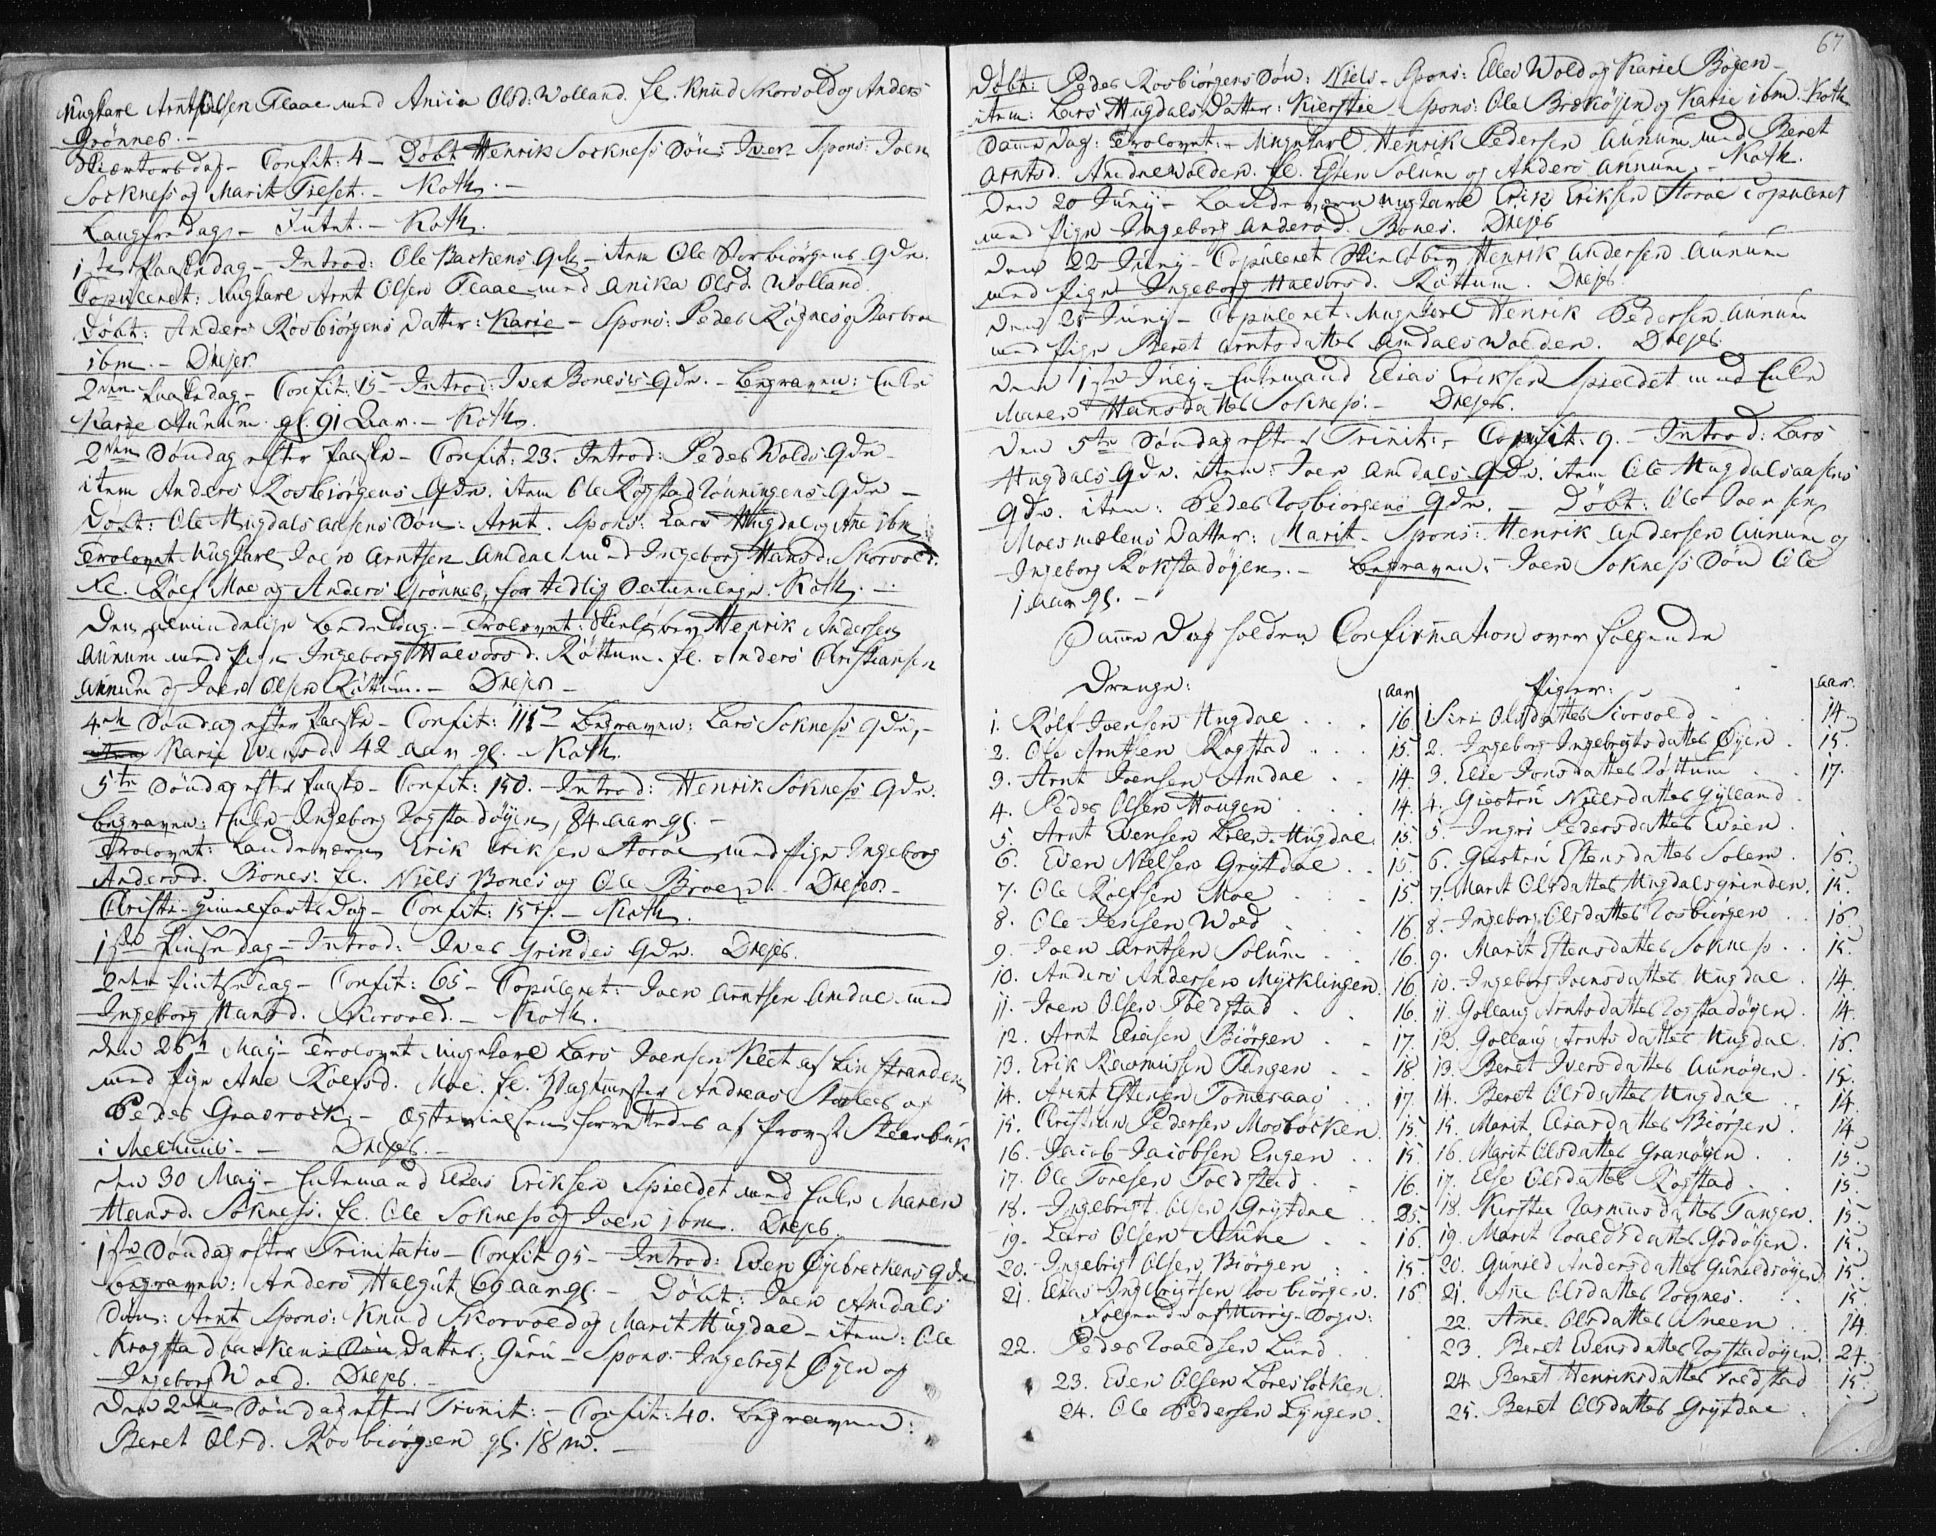 Ungkarl Arnt Olsen Flaae med Anica Olsd: Wolland. fl. Knud Skorvold og Anders
Grønnes. –
Skiærtorsdag – Confit: 4 – Døbt Henrik Sockness Søn: Iver Spons: Joen
Sockness og Marit Freset. – Roth. –
Langfredag – Intet. – Roth.
1ste Paaskedag – Introd: Ole Backens Qde – item Ole Rosbiørgens Qde.
Copuleret: Ungkarl Arnt Olsen Flaae med Anika Olsd. Wolland.
Døbt: Anders Rosbiørgens Datter: Karie – Spons: Peder Rognes og Barbra
ibm. – Drejer.
2den Paaskedag – Confit: 15 – Introd: Iver Bones's Qde. – Begraven: Enke
Karie Aunum gl. 91 Aar. – Roth.
2den Søndag efter Paaske – Confit: 23. Introd: Peder Wolds Qde –
item Anders Rosbiørgens Qde. item Ole Rogstad Rønningens Qde –
Døbt: Ole Hugdalsaasens Søn: Arnt. Spons: Lars Hugdal og Ane ibm
Trolovet Ungkarl Joen Arntsen Amdal med Ingeborg Hansd. Skorvold.
fl. Rolf Moe og Anders Grønnes, for tidlig Roth. –
Den almindelige Bededag. – Trolovet: Henrik Andersen
Aunum med Pige Ingeborg Halvorsd. Røttum. fl. Anders Christiansen
Aunum og Joen Olsen Røttum. – Drejer –
4de Søndag efter Paaske – Confit: 115 – Begraven: Lars Sokness Qde, –
Karie Evensd. 42 Aar gl. – Roth.
5te Søndag efter Paaske – Confit: 150. – Introd: Henrik Sokness Qde.
Begraven: Enke Ingeborg Rogstadøyen, 84 Aar gl. –
Trolovet: Landeværn Erik Eriksen Storøe med Pige Ingeborg
Andersd. Bones: fl. Niels Bones og Ole Broen. Drejer –
Christi Himmelfarts Dag – Confit: 154. – Roth.
1ste Pintsedag – Introd: Iver Grindes Qde. Drejer.
2den Pintsedag – Confit: 65 – Copuleret: Joen Arntsen Amdal med
Ingeborg Hansd. Skorvold. – Roth.
Den 26de May – Trolovet Ungkarl Lars Joensen Klet af Leinstranden
med Pige Ane Rolfsd. Moe. fl. Andreas af
Peder Graarock – Ægtevielsen forrettedes af Provst Steenbuk
i Melhuus. – Drejer. –
Den 30 May – Enkemand Elias Eriksen Spieldet med Enke Maren
Hansd. Sokness. fl. Ole Sokness og Joen ibm. Drejer.
1ste Søndag efter Trinitatis – Confit 95 – Introd: Even Øyebreckens Qde
Begraven: Anders Halgut 69 Aar gl. – Døbt: Joen Amdals
Søn: Arnt Spons: Knud Skorvold og Marit Hugdal – item: Ole
Krogstadbackens Datter: Guru – Spons: Ingebrigt Øyen og
Ingeborg Wold. Drejer. –
Den 2den Søndag efter Trinit: – Confit: 40. Begraven:
Beret Olsd. Rosbiørgen gl. 18 m. –
67
Døbt: Peder Rosbiørgens Søn: Niels – Spons: Elev Wold og Karie Bogen –
item: Lars Hugdals Datter: Kierstie – Spons: Ole Brekøyen og Karie ibm. Roth
Samme Dag: Trolovet: – Ungkarl Henrik Pedersen Aunum med Beret
Arntsd. Amdalswolden. fl. Esten Solum og Anders Aunum. – Roth.
Den 20 Juny – Landeværn Ungkarl Erik Eriksen Storøe Copuleret
med Pige Ingeborg Andersd. Bones. Drejer
Den 22 Juny – Copuleret Henrik Andersen Aunum
med Pige Ingeborg Halvorsd. Røttum. Drejer.
Den 25 Juny – Copuleret: Ungkarl Henrik Pedersen Aunum
med Pige Beret Arntsdatter Amdalswolden. Drejer.
Den 1ste July – Enkemand Elias Eriksen Spieldet med Enke
Maren Hansdatter Sokness. – Drejer.
Den 5te Søndag efter Trinit: – Confit: 9. – Introd: Lars
Hugdals Qde. item: Joen Amdals Qde. item Ole Hugdalsaasens
Qde. item: Peder Rosbiørgens Qde. – Døbt: Ole Joensen
Moesmælens Datter: Marit – Spons: Henrik Andersen Aunum og
Ingeborg Rokstadøyen. – Begraven: Joen Sokness Søn Ole
1 Aar gl. –
Samme Dag holden Confirmation over følgende
Drenge: Aar
1. Rolf Joensen Hugdal . . . 16.
2. Ole Arntsen Rogstad . . . 15.
3. Arnt Joensen Amdal . . 14.
4. Peder Olsen Hougen . 14.
5. Arnt Evensen Lille-Hugdal 15.
6. Even Nielsen Grytdal . . 15.
7. Ole Rolfsen Moe . . . 15
8. Ole Jensen Wold . . . 16.
9. Joen Arntsen Solum . . 16.
10. Anders Andersen Mycklingen. 16
11. Iver Olsen Foldstad . . 16.
12. Arnt Eliesen Biørgen . . 17.
13. Erik Rasmussen Tangen . . 18
14. Arnt Estensen Tomesaas . . 17.
15. Christian Pedersen Mosbøcken. 15.
16. Jacob Jacobsen Engen . . 15.
17. Ole Toresen Foldstad . . 16.
18. Ingebrigt Olsen Grytdal . . 25.
19. Lars Olsen Aune . . 16.
20. Ingebrigt Olsen Biørgen . . 15.
21. Elias Ingebrigtsen Rosbiørgen. 16
Følgende af Horrig-Sogn:
22. Peder Roaldsen Lund .
23. Even Olsen Løresløcken.
24. Ole Pedersen Lyngen.
Piger: Aar.
1 Siri Olsdatter Skorvold . . 14.
2. Ingeborg Ingebrigtsdatter Øyen . 15.
3. Else Jonsdatter Røttum . . 17.
4. Giertru Nielsdatter Gylland .
5. Ingri Pedersdatter Evien .
6. Giertru Estensdatter Solem . 16.
7. Marit Olsdatter Hugdalsgrinden. 15.
8. Ingeborg Olsdatter Rosbiørgen . . 16
9. Marit Estensdatter Sokness . . 15.
10. Ingeborg Joensdatter Hugdal . 14.
11. Gollaug Arntsdatter Rogstadøyen. 14.
12. Gollaug Arntsdatter Hugdal . 16.
13. Beret Iversdatter Aunøyen . 15.
14. Beret Olsdatter Hugdal . . 14.
15. Marit Eliasdatter Biørgen . 14.
16. Marit Olsdatter Granøyen . . 15.
17. Else Olsdatter Rogstad . . 15.
18. Kirstie Rasmusdatter Tangen. 15.
19. Marit Roaldsdatter Godøyen. 15.
20. Gunild Andersdatter Gunildsøyen 15.
21. Ane Olsdatter Rognes . . 15
22. Ane Olsdatter Sneen . . 14
23. Beret Evensdatter Rogstadøyen. 24.
24. Beret Henriksdatter Foldstad 15.
25. Beret Olsdatter Grytdal .